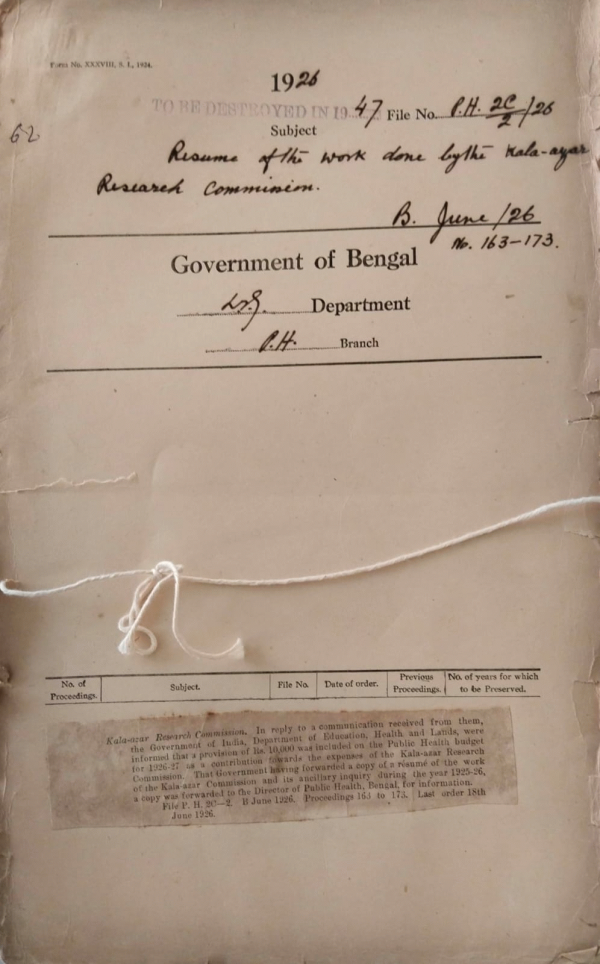 Form No. XXXVIII, S. I., 1924.
1926
TO BE DESTROYED IN 1947 File No. P.H. 2C/2/26
62
Subject
Resume of the work done by the Kala-azar
Research Commission.
B. June /26
No. 163-173.
Government of Bengal
Department
P.H. Branch
No. of Proceedings. Subject. File No. Date of order. Previous Proceedings. No. of years for which to be Preserved.
Kala-azar Research Commission. In reply to a communication received from them,
the Government of India, Department of Education, Health and Lands, were
informed that a provision of Rs. 10,000 was included on the Public Health budget
for 1926-27 as a contribution towards the expenses of the Kala-azar Research
Commission. That Government having forwarded a copy of a résumé of the work
of the Kala-azar Commission and its ancillary inquiry during the year 1925-26,
a copy was forwarded to the Director of Public Health, Bengal, for information.
File P. H. 2C—2. B June 1926. Proceedings 163 to 173. Last order 18th
June 1926.